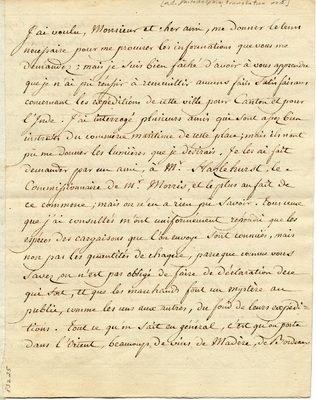 J'ai voulu, Monsieur et cher ami, me donner le tems
necessaire pour me procurer les informations que vous me
demandez; mais je suis bien faché d'avoir à vous apprendre
que je n'ai pû réussir à recueillir aucuns faits satisfaisans
concernant les expéditions de cette ville pour Canton et pour
l'Inde. J'ai interrogé plusieurs amis qui sont assez bien
instruits du commerce maritime de cette place; mais ils n'ont
pû me donner les lumières que je désirais. Je les ai fait
demander par un ami, à Mr. Hazlehurst, le
Commissionnaire de Mr. Morris, et le plus au fait de
ce commerce; mais on n'en a rien pu savoir. Tous ceux
que j'ai consultés m'ont uniformement repondu que les
espèces des cargaisons que l'on envoye sont connues, mais
non pas les quantités de chaque, parceque comme vous
savez, on n'est pas obligé de faire de déclaration de ce
qui sort, et que les marchands font un mystère au
public, comme les uns aux autres, du fond de leurs expédi-
tions. Tout ce qu'on sait en general, c'est qu'on porte
dans l'Orient, beaucoup de vins de Madère, de Bordeaux